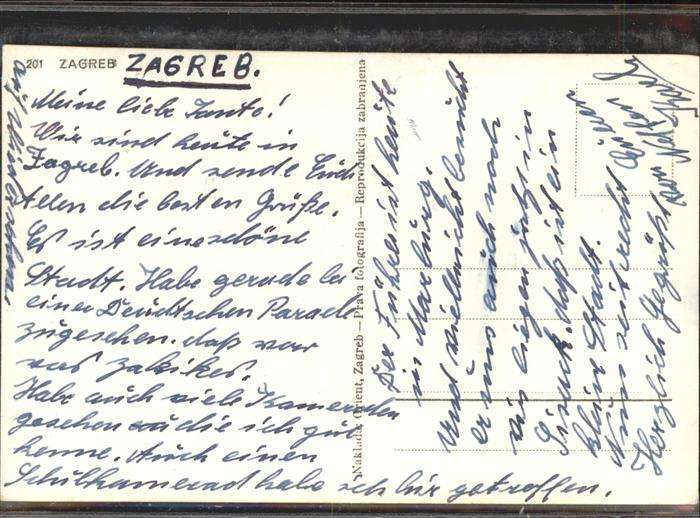 201 ZAGREB
ZAGREB.
Meine liebe Tante!
Wir sind heute in
Zagreb. Und sende Euch
Allen die besten Grüße.
Es ist eine schöne
Stadt. Habe gerade bei
einer Deutschen Parade
zugesehen. daß war
was
Habe auch viele Kameraden
gesehen die ich gut
kenne. Auch einen
Schulkamerad habe ich hir getroffen.
Nakladа: Orient, Zagreb — Prava fotografija — Reprodukcija zabranjena
Der Führer ist heute
in Marburg.
Und vielleicht besucht
er uns auch noch
wir liegen jetzt in
Sisack. daß ist ein
kleine Stadt.
Nun seit recht
Herzlich Gegrüßt